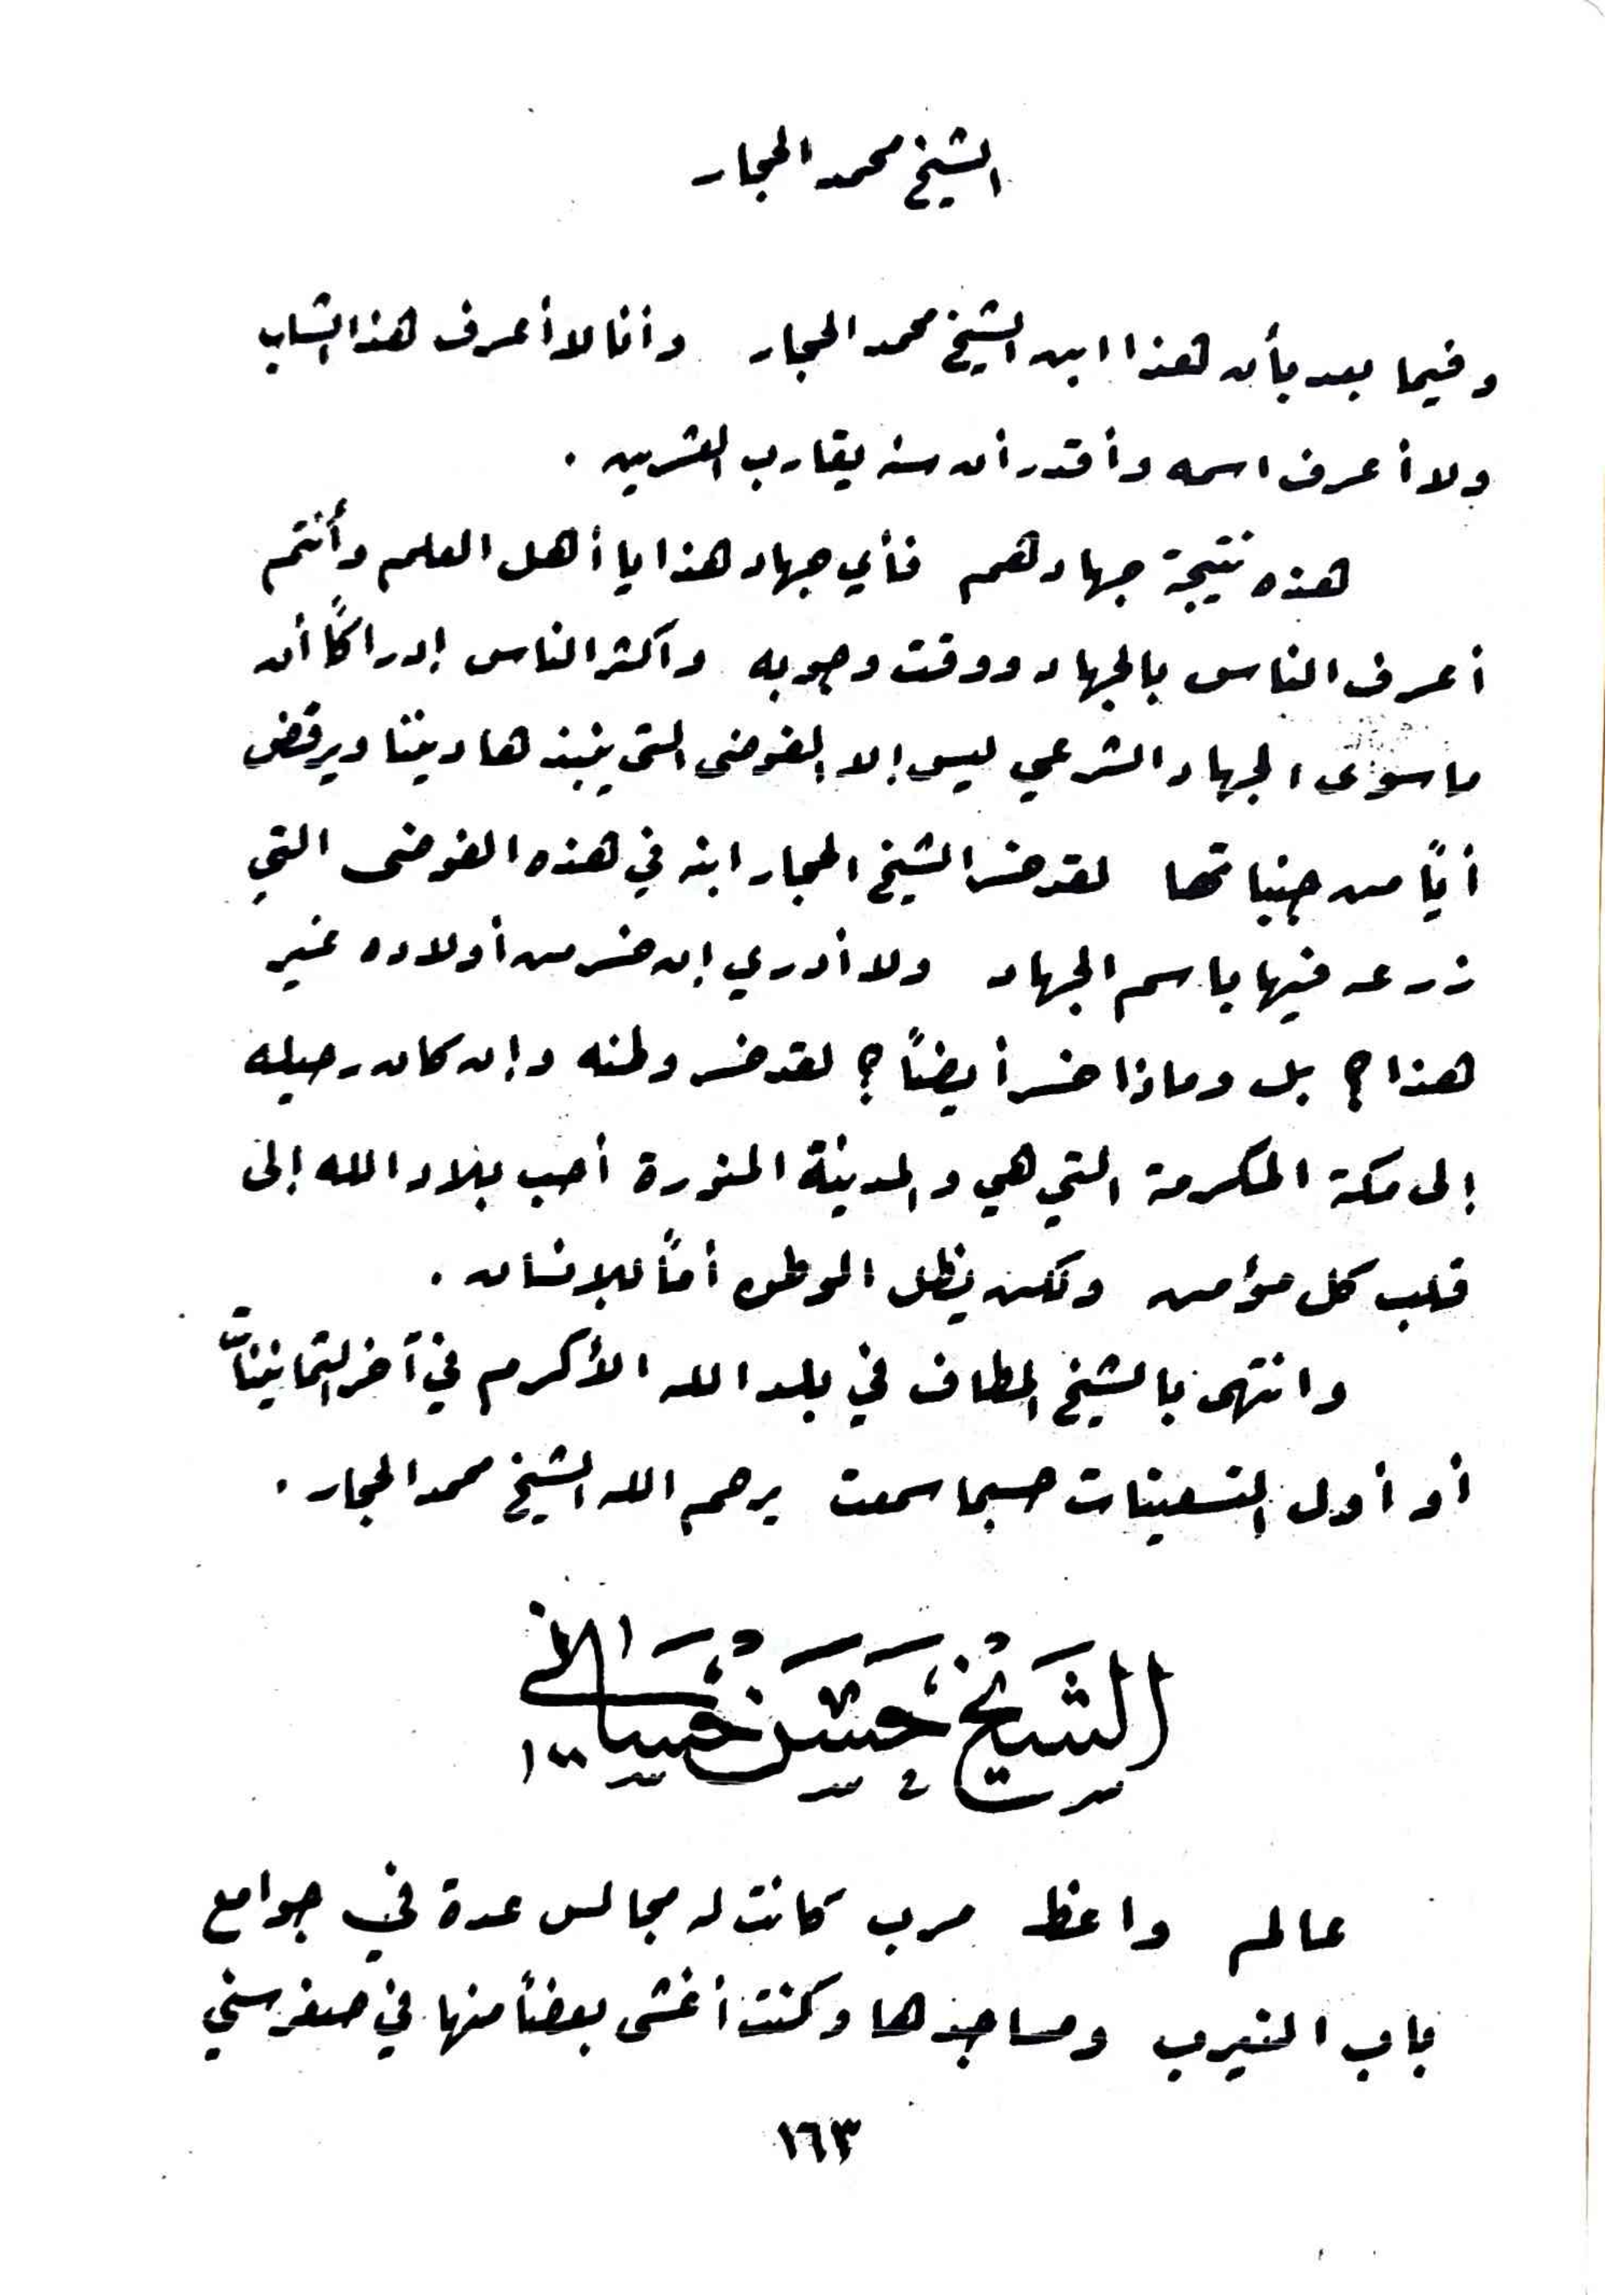 الشيخ محمد الحجار
وفيما بعد بأن هذا ابن الشيخ محمد الحجار وأنا لا أعرف هذا الشاب
ولا أعرف اسمه وأقدر أن سنه يقارب العشرين .
هذه نتيجة جهادهم فأي جهاد هذا يا أهل العلم وأنتم
أعرف الناس بالجهاد ووقت وجوبه وأكثر الناس إدراكاً أن
ما سوى الجهاد الشرعي ليس إلا الفوضى التي ينبذها ديننا ويرفض
أياً من جنباتها لقد خسر الشيخ الحجار ابنه في هذه الفوضى التي
زرعه فيها باسم الجهاد ولا أدري إن خسر من أولاده غير
هذا ؟ بل وماذا خسر أيضاً ؟ لقد خسر وطنه وإن كان رحيله
إلى مكة المكرمة التي هي والمدينة المنورة أحب بلاد الله إلى
قلب كل مؤمن ولكن يظل الوطن أماً للإنسان .
وانتهى بالشيخ المطاف في بلد الله الأكرم في آخر الثمانينات
أو أول التسعينات حسبما سمعت يرحم الله الشيخ محمد الحجار .
الشيخ حسن
عالم واعظ مرب كانت له مجالس عدة في جوامع
باب النيرب ومساجدها وكنت أغشى بعضاً منها في صغر سني
١٦٣